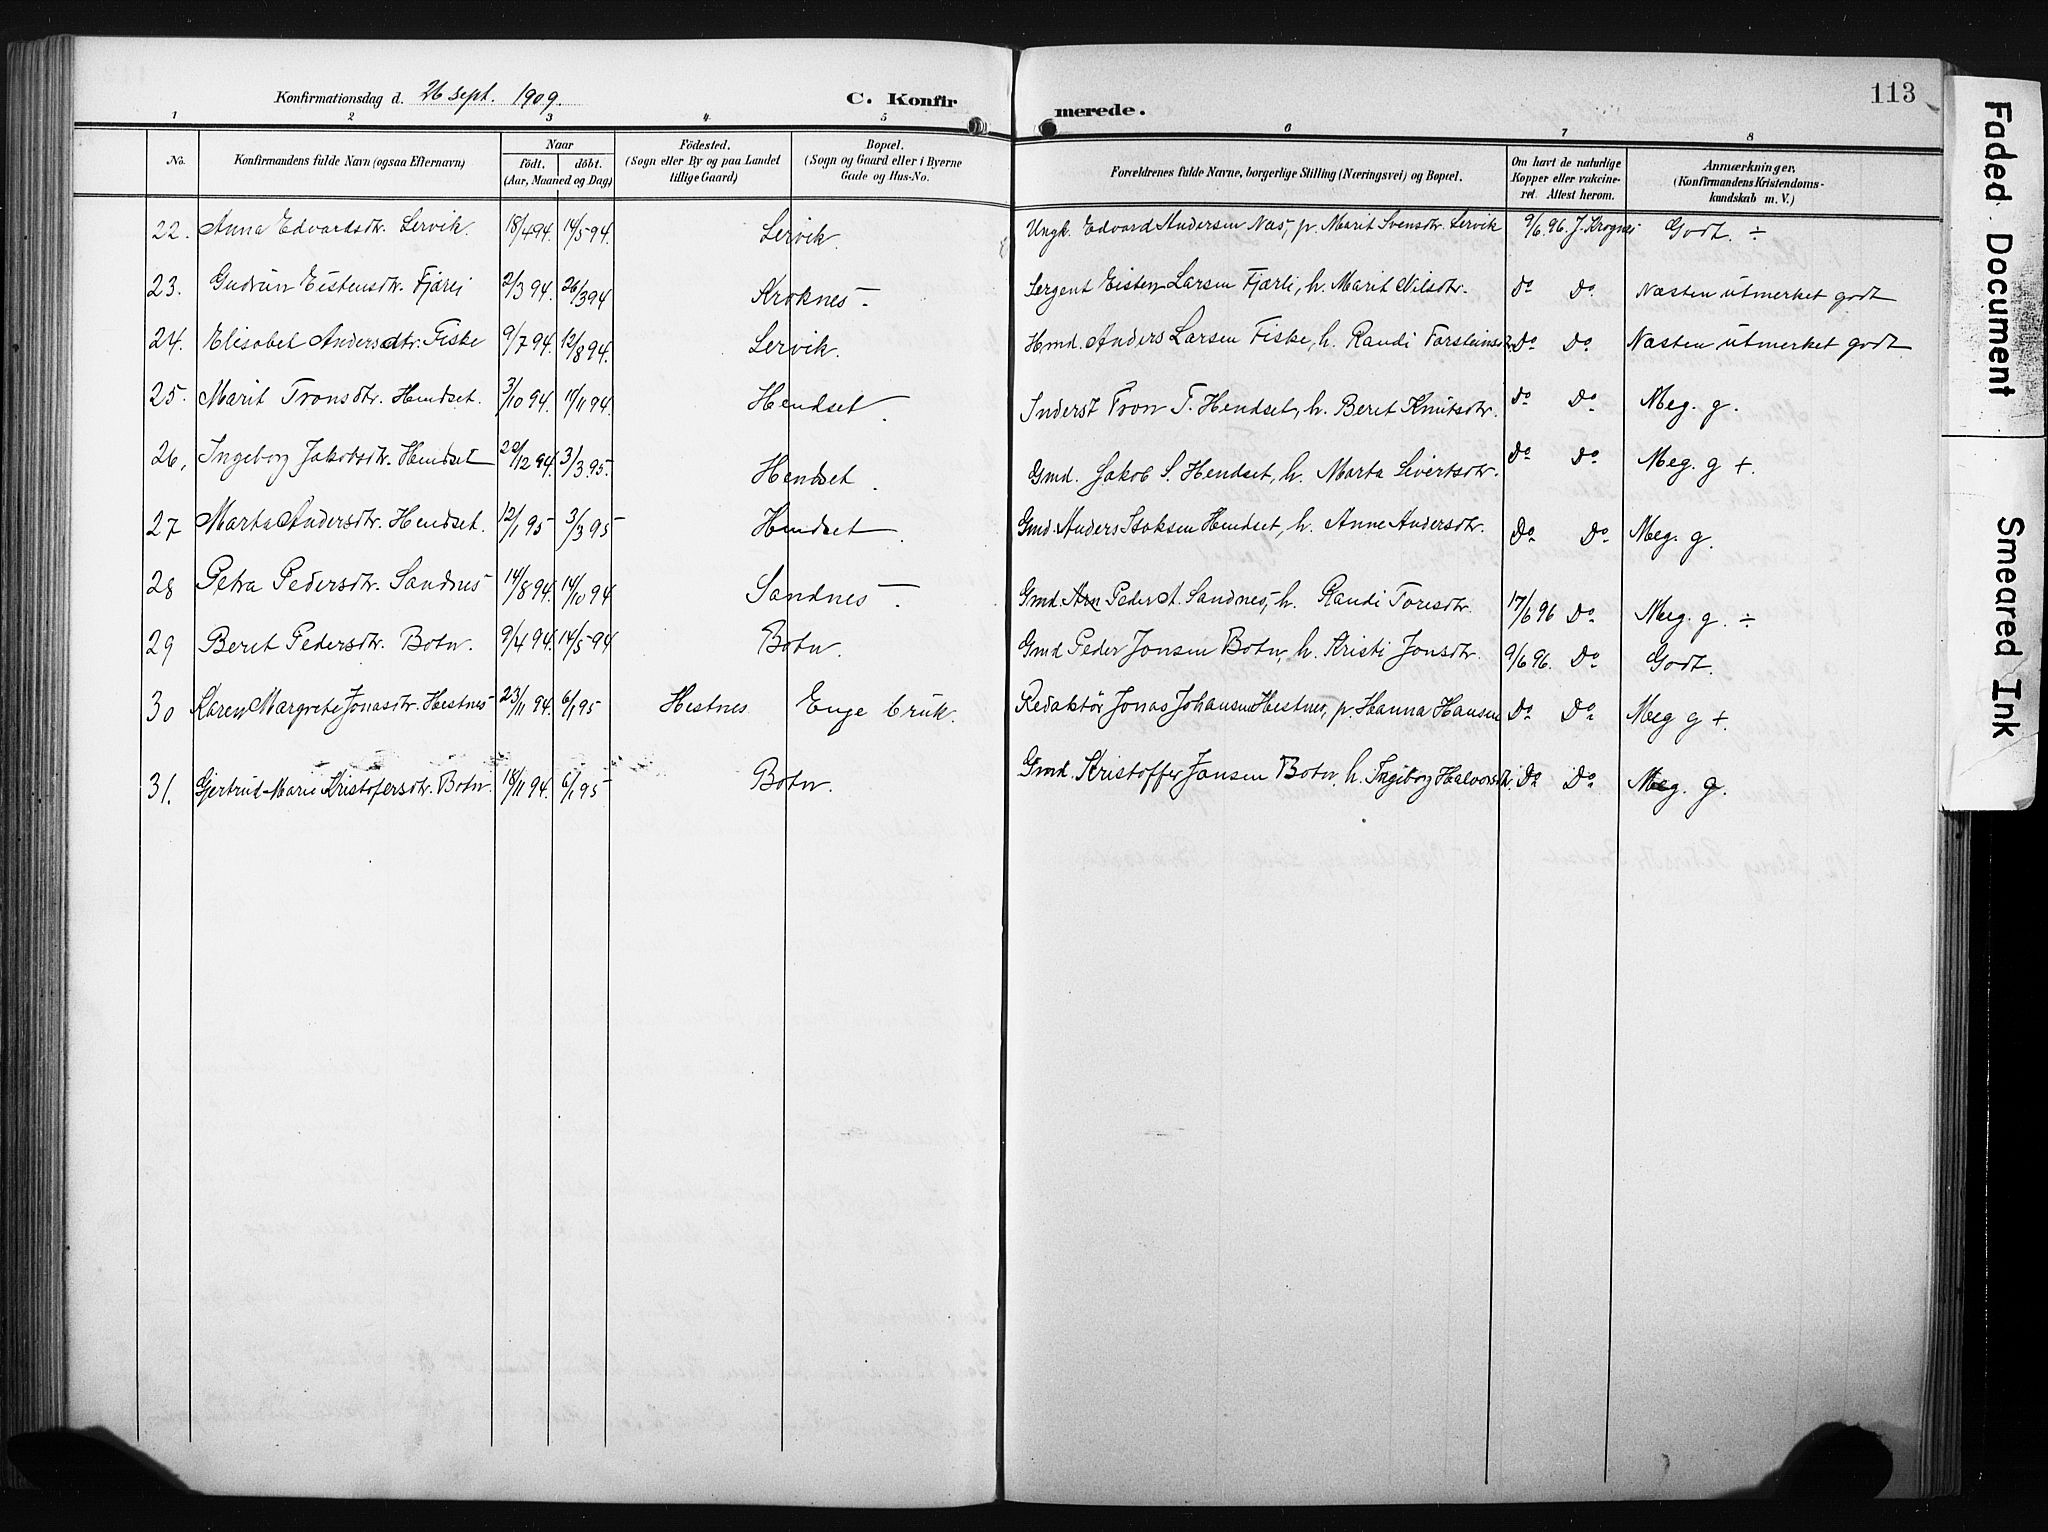 Konfirmationsdag d. 26 sept. 1909. C. Konfirmerede. 113
1 2 3 4 5 6 7 8
No. Konfirmandens fulde Navn (ogsaa Efternavn) Naar födt. döbt. (Aar, Maaned og Dag) Födested. (Sogn eller By og paa Landet tillige Gaard) Bopæl. (Sogn og Gaard eller i Byerne Gade og Hus-No. Forældrenes fulde Navne, borgerlige Stilling (Næringsvei) og Bopæl. Om havt de naturlige Kopper eller vakcineret. Attest herom. Anmærkninger, (Konfirmandens Kristendomskundskab m. V.)
22. Anna Edvardsdtr. Lervik. 18/4 94. 14/5 94. Lervik. Ungk. Edvard Andersen Næs, p. Marit Svensdtr. Lervik 9/6 96. J. Krognes Godt. ÷
23. Gudrun Eistensdtr. Fjærli 2/3 94. 26/3 94 Kroknes Sergent Eisten Larsen Fjærli, h. Marit Nilsdtr. Do Do. Næsten utmerket godt
24. Elisabet Andersdtr. Fiske 9/7 94. 12/8 94. Lervik. Hmd. Anders Larsen Fiske, h. Randi Torsteinsdtr. Do Do. Næsten utmerket godt
25. Marit Tronsdtr. Hendset. 3/10 94. 11/11 94. Hendset. Inderst Tron T. Hendset, h. Beret Knutsdtr. Do Do. Meg. g.
26. Ingeborg Jakobsdtr. Hendset 22/12 94. 3/3 95. Hendset. Gmd. Jakob S. Hendset, h. Marta Sivertsdtr. Do Do. Meg. g +.
27 Marta Andersdtr. Hendset. 12/1 95 3/3 95 Hendset. Gmd. Anders Isaksen Hendset, h. Anne Andersdtr. Do Do. Meg. g.
28 Petra Pedersdtr. Sandnes 14/8 94. 14/10 94 Sandnes. Gmd. Peder A. Sandnes, h. Randi Toresdtr. 17/6 96 Do Meg. g. ÷
29 Beret Pedersdtr. Botn. 9/4 94. 14/5 94 Botn. Gmd Peder Jonsen Botn, h. Kristi Jonsdtr. 9/6 96. Do Godt.
30 Karen Margrete Jonasdtr. Hestnes 23/11 94. 6/1 95 Hestnes Enge bruk. Redaktör Jonas Johansen Hestnes, p. Hanna Hansen Do Do Meg g +.
31. Gjertrud Marie Kristofersdtr. Botn. 18/11 94. 6/1 95 Botn. Gmd. Kristoffer Jansen Botn, h. Ingeborg Halvorsdtr. Do Do Meg. g.
Faded Document
Smeared Ink